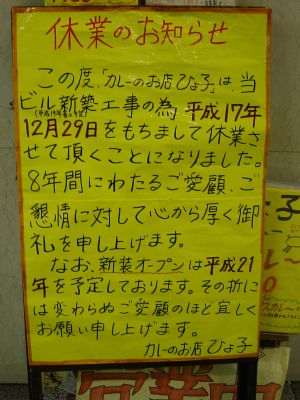 休業のお知らせ
この度、「カレーのお店ひよ子」は、当
ビル新築工事の為平成17年
12月29日をもちまして休業さ
せて頂くことになりました。
8年間にわたるご愛顧、ご
懇情に対して心から厚く御
礼を申し上げます。
なお、新装オープンは平成21
年を予定しております。その折に
は変わらぬご愛顧のほど宜しく
お願い申し上げます。
カレーのお店 ひよ子